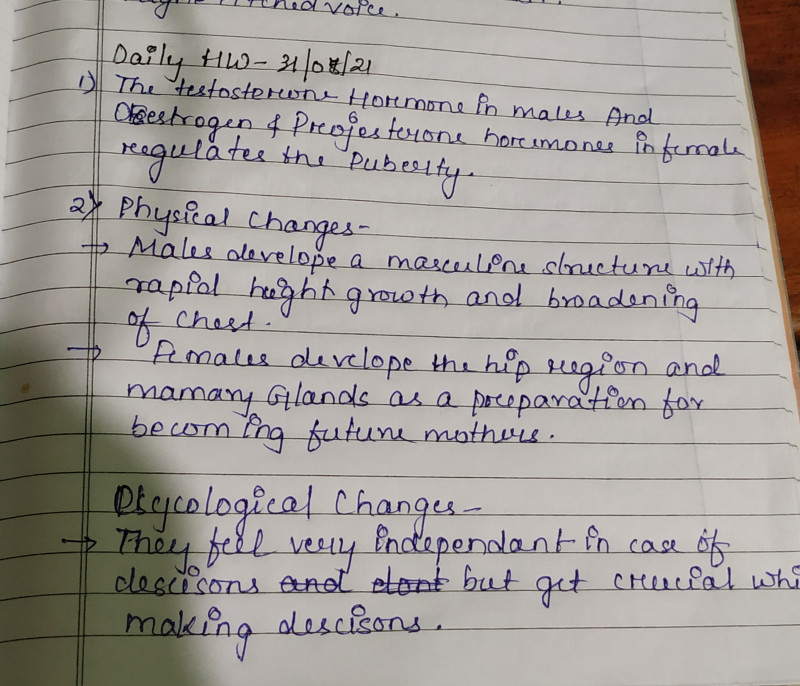 pitched voice.
Daily HW - 31/08/21
1) The testosterone Hormone in males And
Oestrogen & Progesterone hormones in female
regulates the Puberity.
2) Physical Changes-
→ Males develope a masculine structure with
rapid height growth and broadening
of chest.
→ Females develope the hip region and
mamary Glands as a preparation for
becoming future mothers.
Psycological Changes-
→ They feel very independant in case of
descisons and dont but get crucial whi
making descisons.